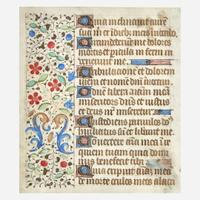 Quia inclinavit aurem
suam m et in diebus meis invocabo
Circumdederunt me dolores
mortis et pericula inferni in
venerunt me
Tribulationem et dolorem
inveni et nomen dni invocavi
O dne libera animam meam
misericors dns et iustus
et deus nr miseretur
Custodiens parvulos dns
humiliatus sum et liberavit me
Convertere anima mea in
requiem tuam quia domi
nus benefecit tibi
Quia eripuit animam meam
de morte oculos meos a lacri